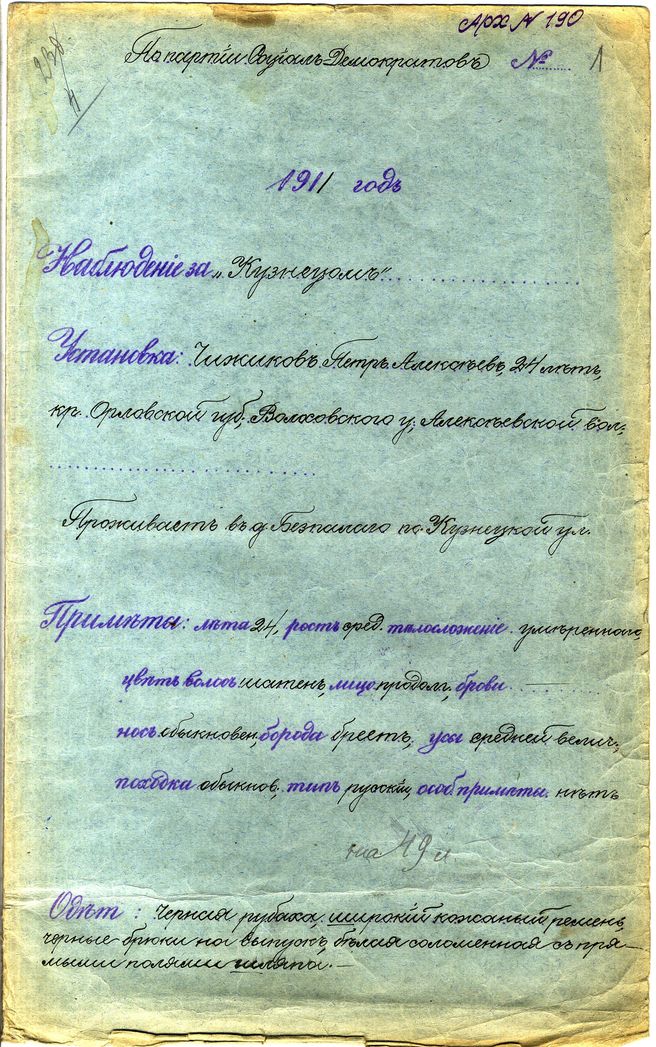 Арх N 190
238/4
По партіи Соціалъ-Демократовъ № 1
1911 годъ
Наблюденіе за „Кузнецомъ“
Установка: Чижиковъ Петръ Алексѣевъ, 24 лѣтъ,
кр. Орловской губ., Волховского у., Алексѣевской вол.,
Проживаетъ въ д. Безпалаго по Кузнецкой ул.
Примѣты: лѣта 24, ростъ сред. тѣлосложеніе умѣреннаго,
цвѣтъ волосъ шатенъ, лицо продолг., брови
носъ обыкновен., борода брѣетъ, усы средней велич.,
походка обыкнов., типъ русскій, особ. примѣты нѣтъ
на 49 л
Одѣт: черная рубаха, широкій кожаный ремень,
черные брюки на выпускъ, бѣлая соломенная съ пря-
мыми полями шляпа.—